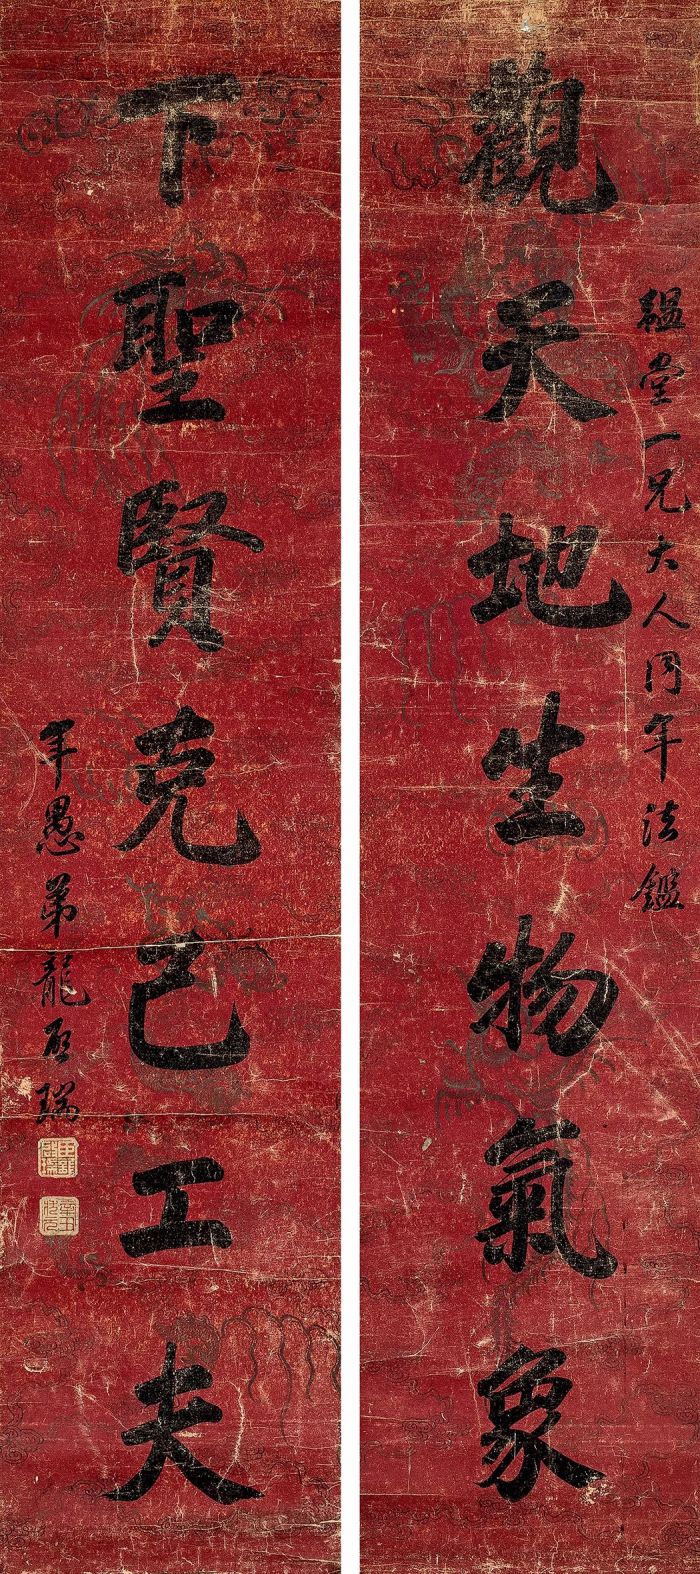 韞堂一兄大人同年法鑑
觀天地生物氣象
下聖賢克己工夫
年愚弟龍啟瑞